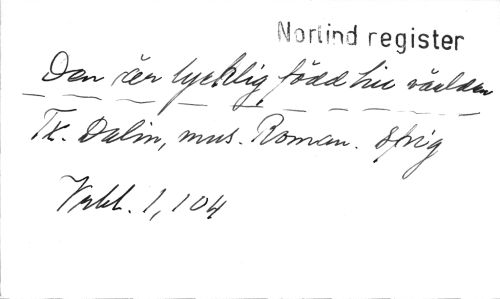 Norlind register
Den är lycklig född hie världen
Tx. Dalin, mus. Roman. Sprig
Vrbl. 1, 104